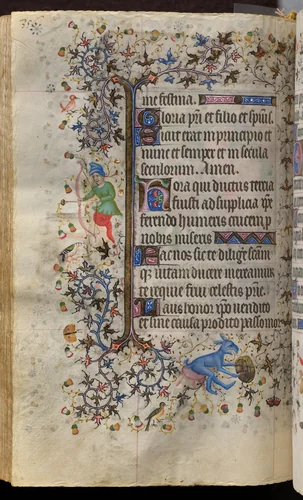 me festina.
Gloria pri et filio et spui s.
Sicut erat in principio et
nunc et semper et in secula
seculorum. Amen.
Hora qui ductus tercia
fuisti ad suplicia xpe
ferendo humeris crucem p
nobis miseris
Fac nos sic te dilige scam
q; vitam ducere mereamur
re requie frui celestis prie.
Laus honor xpo vendito
et sine causa prodito passo mor